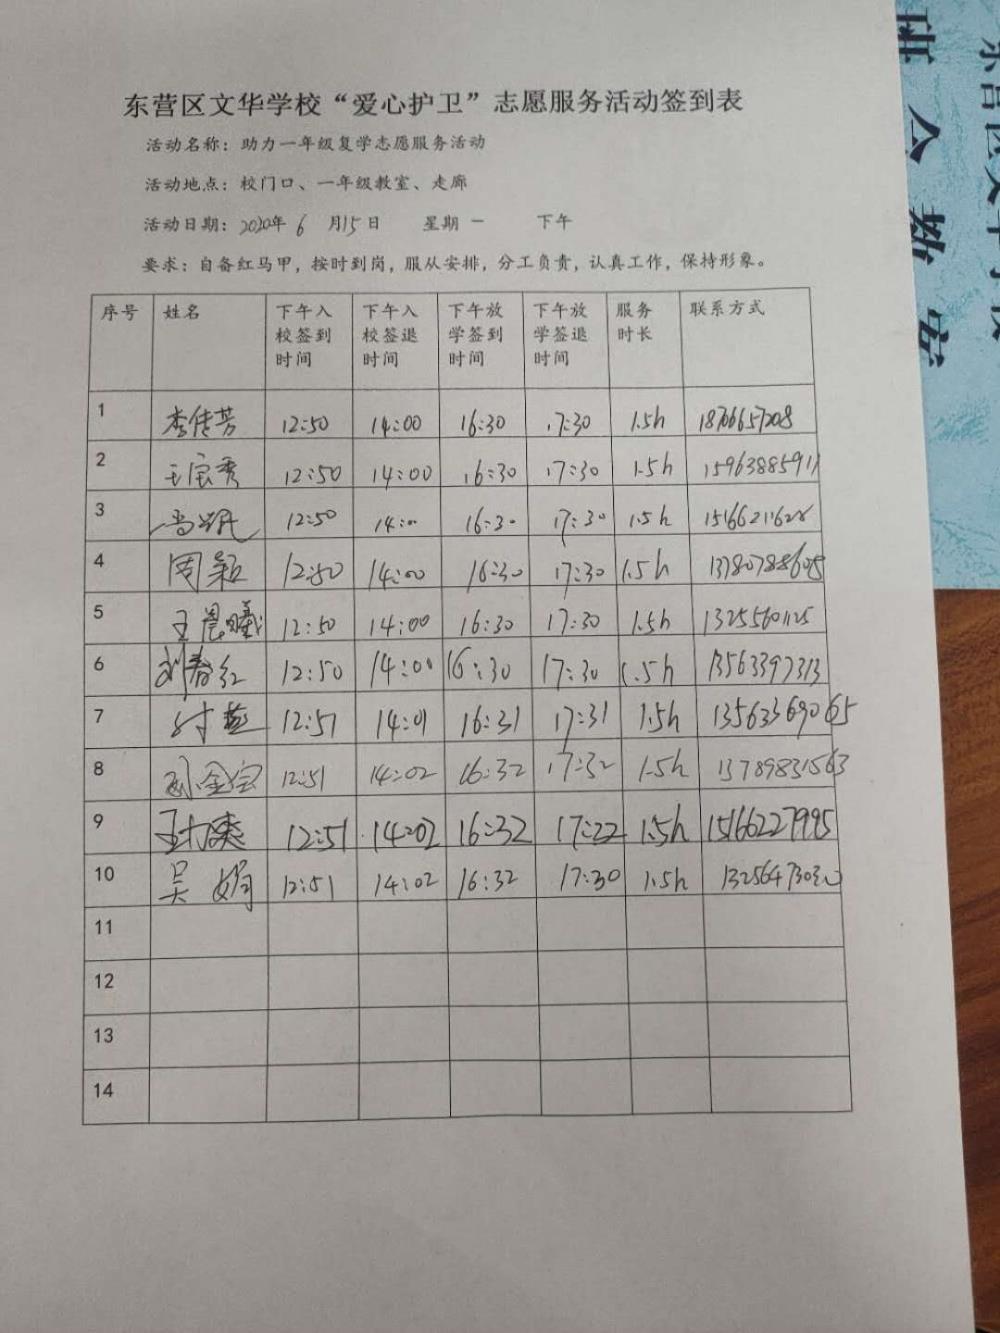 东营区文华学校“爱心护卫”志愿服务活动签到表
活动名称：助力一年级复学志愿服务活动
活动地点：校门口、一年级教室、走廊
活动日期：2020年 6 月15日 星期 一 下午
要求：自备红马甲，按时到岗，服从安排，分工负责，认真工作，保持形象。
序号 姓名 下午入校签到时间 下午入校签退时间 下午放学签到时间 下午放学签退时间 服务时长 联系方式
1 李传芳 12:50 14:00 16:30 17:30 1.5h 18766657208
2 王宝秀 12:50 14:00 16:30 17:30 1.5h 15963885911
3 12:50 14:00 16:30 17:30 1.5h 15166211628
4 周颖 12:50 14:00 16:30 17:30 1.5h 13780788605
5 王晨曦 12:50 14:00 16:30 17:30 1.5h 13255601125
6 刘春红 12:50 14:00 16:30 17:30 1.5h 13563397313
7 付燕 12:51 14:01 16:31 17:31 1.5h 13563369065
8 孙金宝 12:51 14:02 16:32 17:32 1.5h 13789831563
9 12:51 14:02 16:32 17:22 1.5h 15166227995
10 吴娟 12:51 14:02 16:32 17:30 1.5h
11
12
13
14
班会教案